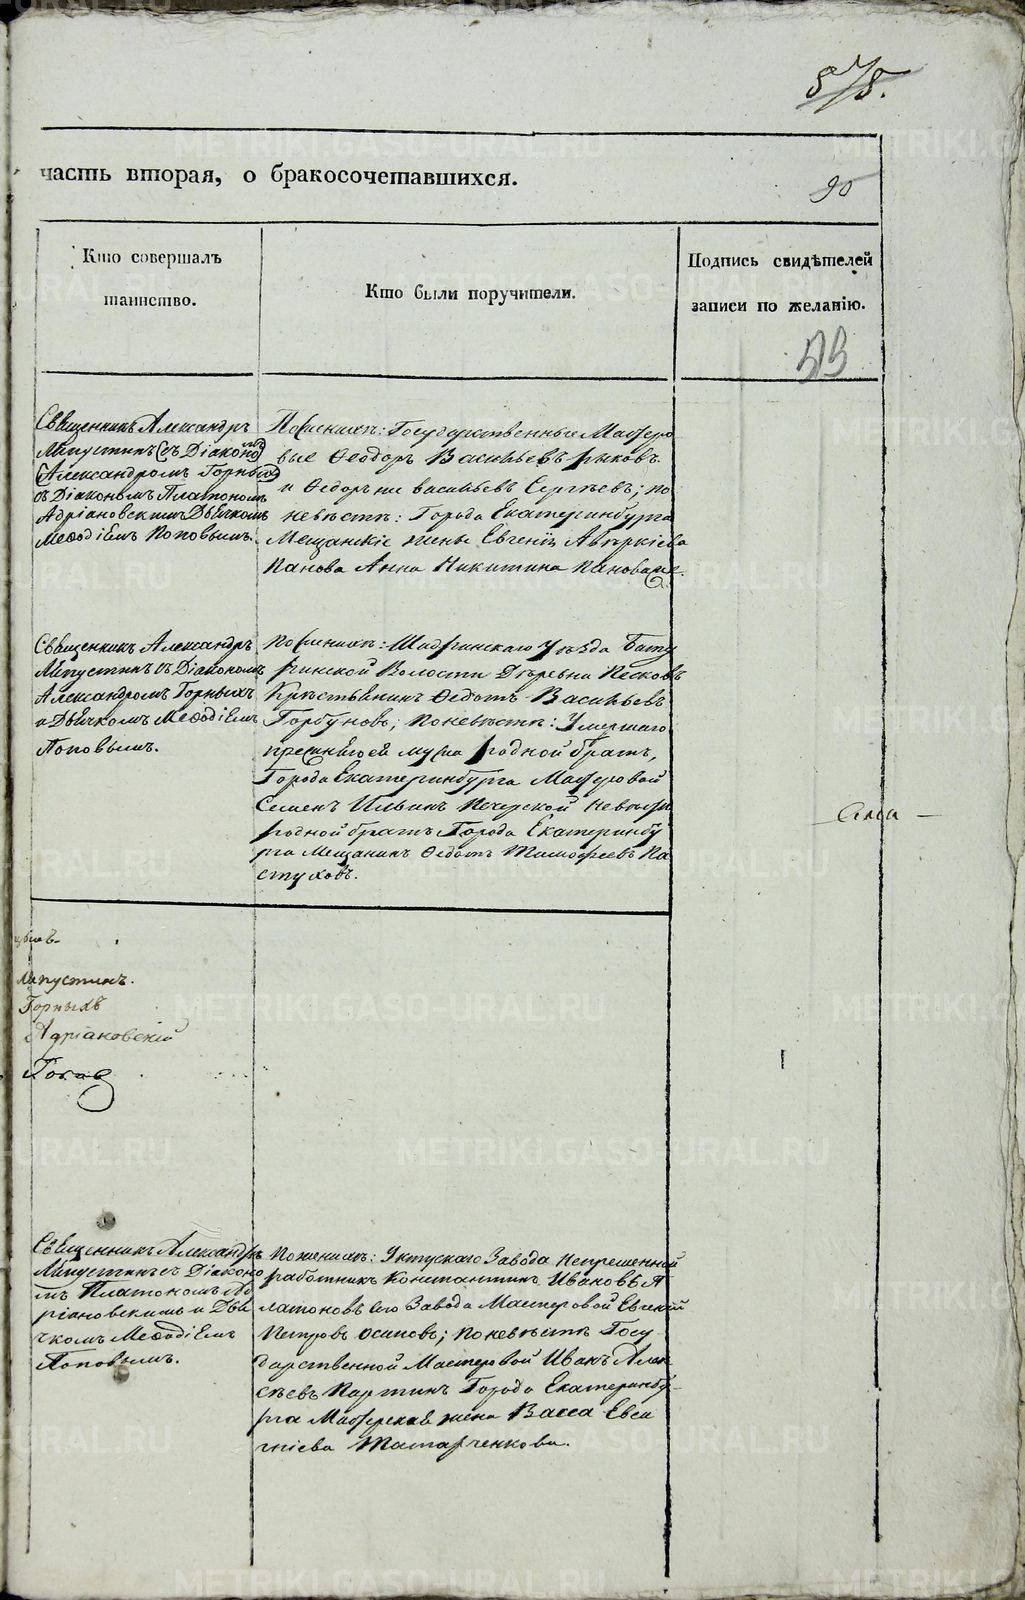 578.
часть вторая, о бракосочетавшихся.
90
Кто совершалъ
таинство.
Кто были поручители.
Подпись свидѣтелей
записи по желанію.
Священникъ Александръ
Липустинъ съ Діакономъ
Александромъ Горныхъ
съ Діакономъ Платономъ
Адріановскимъ Дьячкомъ
Меѳодіемъ Поповымъ.
По женихѣ: Государственные Мастеро
вые Ѳеодоръ Васильевъ Рыковъ
и Ѳедоръ же Васильевъ Сергѣевъ; по
невѣстѣ: Города Екатеринбурга
Мещанскіе жены Евгенія Аверкіева
Панова Анна Никитина Панова же.
Священникъ Александръ
Липустинъ съ Діакономъ
Александромъ Горныхъ
и Дьячкомъ Меѳодіемъ
Поповымъ.
По женихѣ: Шадринскаго Уѣзда Бату
ринской Волости Деревни Песковъ
Крестьянинъ Ѳедотъ Васильевъ
Горбуновъ; По невѣстѣ: Умершаго
прежняго ей мужа родной братъ,
Города Екатеринбурга Мастеровой
Семенъ Ильинъ Печерской Невѣсты
родной братъ Города Екатеринбу
рга Мещанинъ Ѳедотъ Тимофеевъ Па
стуховъ.
Липустинъ.
Горныхъ
Адріановскій
Поповъ
Священникъ Александръ
Липустинъ съ Діаконо
мъ Платономъ Ад
ріановскимъ и Дья
чкомъ Меѳодіемъ
Поповымъ.
По женихѣ: Уктускаго Завода Непременной
работникъ Константинъ Ивановъ П
латоновъ его Завода Мастеровой Евгеній
Петровъ Осиповъ; по невѣстѣ Госу
дарственной Мастеровой Иванъ Алек
сѣевъ Партинъ Города Екатеринбу
рга Мастерская жена Васса Евсе
гніева Татарченкова.
METRIKI.GASO-URAL.RU